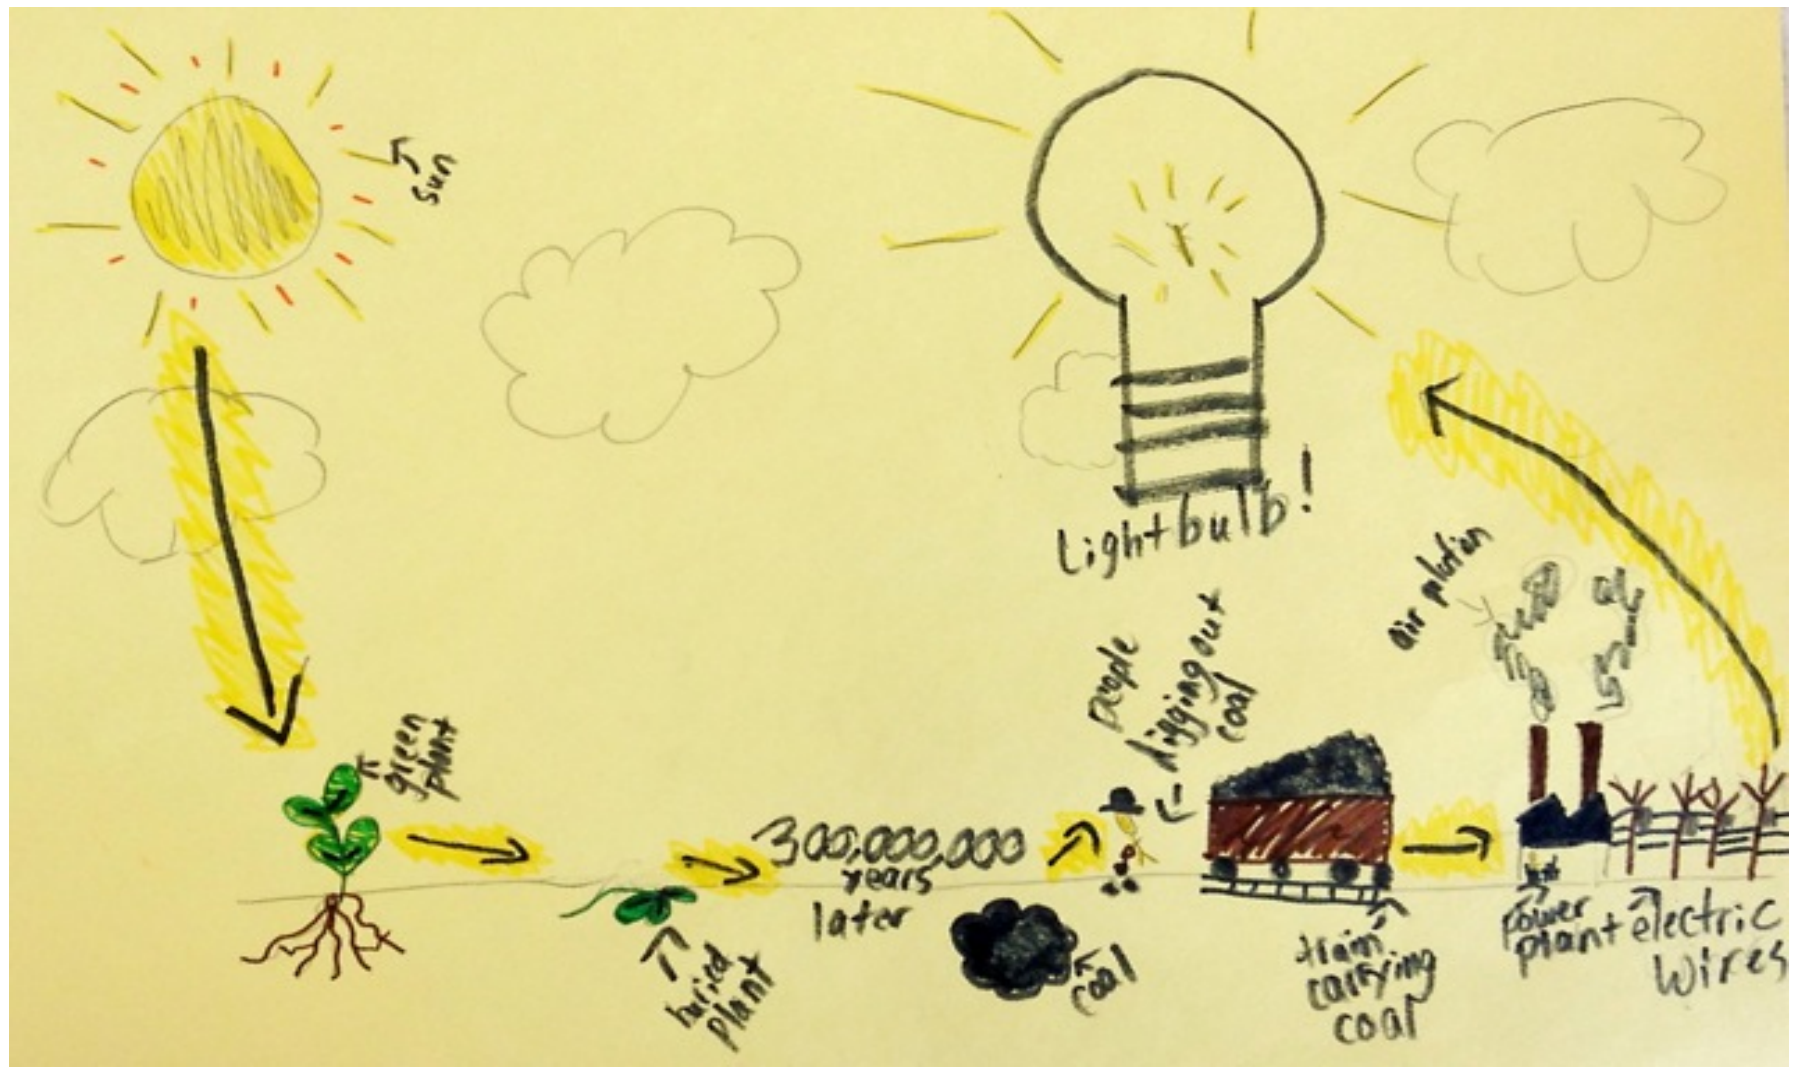 sun
Lightbulb!
green
plant
buried
plant
300,000,000
years
later
coal
people
digging out
coal
train
carrying
coal
air
power
plant
electric
wires